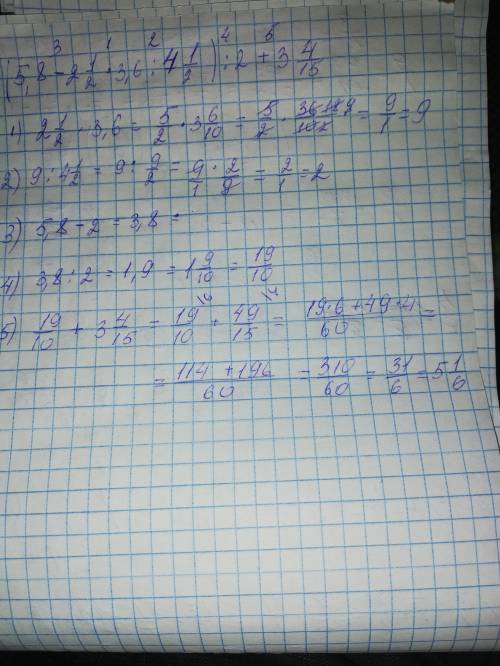 3 1 2 4 5
(5,8 - 2 1/2 · 3,6 : 4 1/2) : 2 + 3 4/15
1) 2 1/2 · 3,6 = 5/2 · 3 6/10 = 5/2 · 36/10 = 9/1 = 9
2) 9 : 4 1/2 = 9 : 9/2 = 9/1 · 2/9 = 2/1 = 2
3) 5,8 - 2 = 3,8 =
4) 3,8 : 2 = 1,9 = 1 9/10 = 19/10
5) 19/10 + 3 4/15 = 19/10 + 49/15 = (19·6 + 49·4)/60 =
= (114 + 196)/60 = 310/60 = 31/6 = 5 1/6